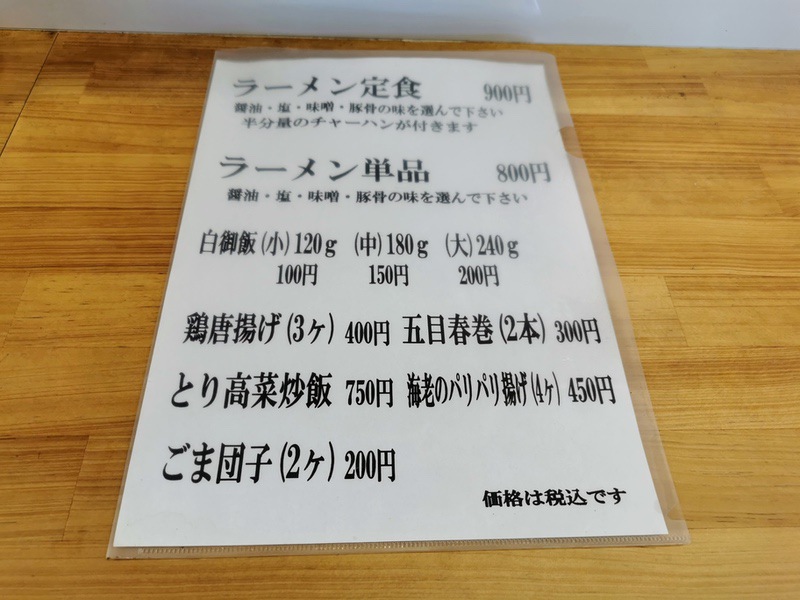 ラーメン定食 900円
醤油・塩・味噌・豚骨の味を選んで下さい
半分量のチャーハンが付きます
ラーメン単品 800円
醤油・塩・味噌・豚骨の味を選んで下さい
白御飯(小)120g (中)180g (大)240g
100円 150円 200円
鶏唐揚げ(3ヶ) 400円 五目春巻(2本) 300円
とり高菜炒飯 750円 海老のパリパリ揚げ(4ヶ) 450円
ごま団子(2ヶ) 200円
価格は税込です